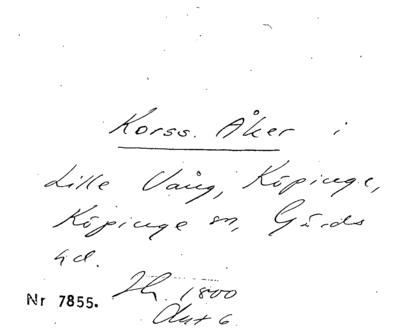 Korss. Åker i
Lille Vång, Köpinge,
Köpinge sn, Gärds
hd.
Nr 7855. Sk. 1800
Akt 6